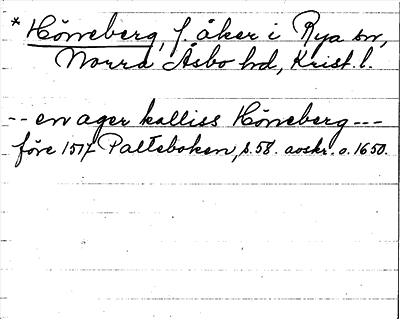 * Hönneberg, f. åker i Rya sn,
Norra Åsbo hd, Krist. l.
-- en ager kalliss Hönneberg ---
före 1517 Palteboken, s. 58. avskr. o. 1650.